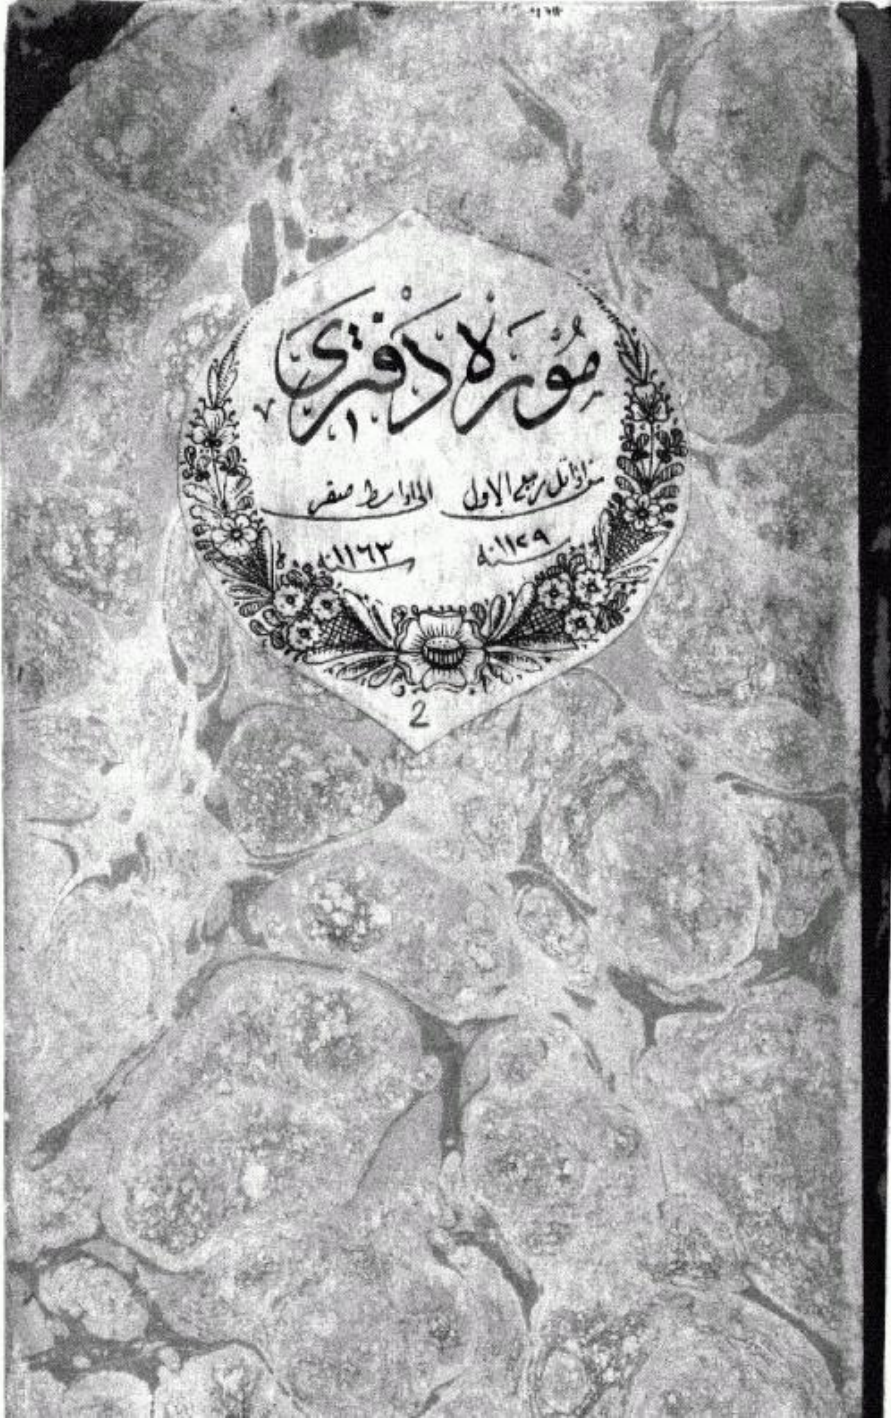 موره دفترى
١
من اوائل ربيع الاول الى اواسط صفر
سنه ١١٢٩ سنه ١١٦٣
2